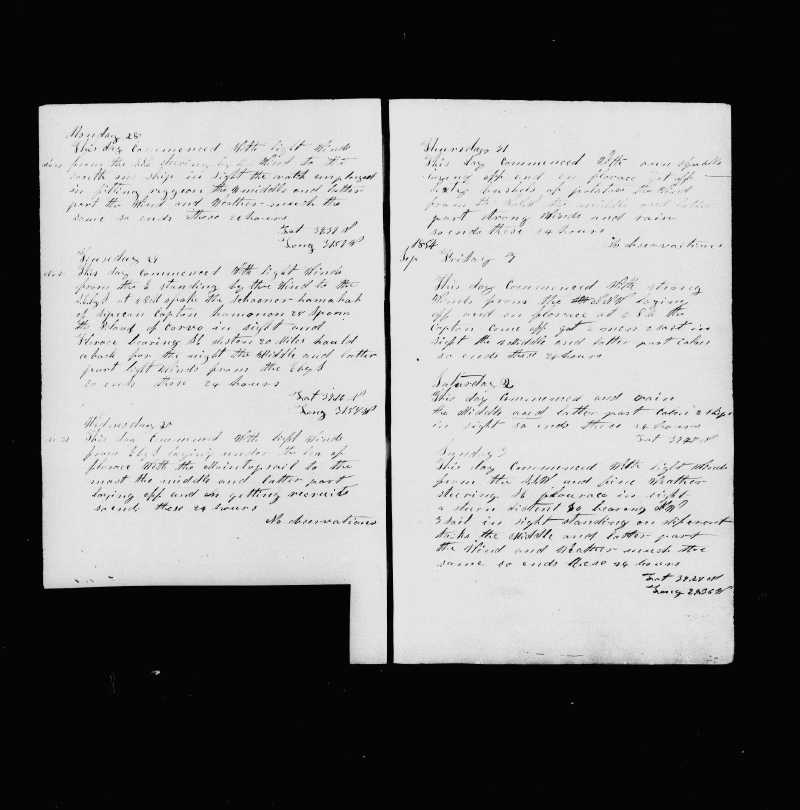 Monday 28
This day Commenced With light Winds
from the steering by the Wind to the
south one ship in sight the watch employed
in fitting riggeon the middle and latter
part the Wind and Weather much the
same so ends these 24 hours
Lat 39.31 N
Long 31.57 W
Tuesday 29
This day commenced With light Winds
from the E standing by the Wind to the
at spoke the schooner hamabah
of sipecan Capton hamonon 25 sparm
the Island of Corvo in sight and
Florace bearing SE diston 20 Miles hauld
aback for the night the Middle and latter
part light Winds from the EbyS
so ends these 24 hours
Lat 39.
Long 31.54 W
Wednesday
This day Commenced With light Winds
from EbyS laying under the lea of
florace With the Maintopsail to the
mast the middle and latter part
laying off and on getting recruits
so ends these 24 hours
No observations
Thursday 31
This day Commenced With
laying off and on florace got off
sixty bushels of potatoes the Wind
from the the middle and latter
part strong Winds and rain
so ends these 24 hours
No observaitions
1854
Sep Friday
This day Commenced With strong
Winds from the laying
off and on florace at the
Capton Come off got men 2 sail in
sight the Middle and latter part calm
so ends these 24 hours
Saturday 2
This day Commenced and rain
the Middle and latter part Calm 2 ships
in sight so ends these 24 hours
Lat 39.
Sunday 3
This day Commenced With light Winds
from the and fine Weather
steering SE flourace in sight
a stern distent bearing NW
3 sail in sight standing on diferent
tacks the Middle and latter part
the Wind and Weather much the
same so ends these 24 hours
Lat 39.24 N
Long